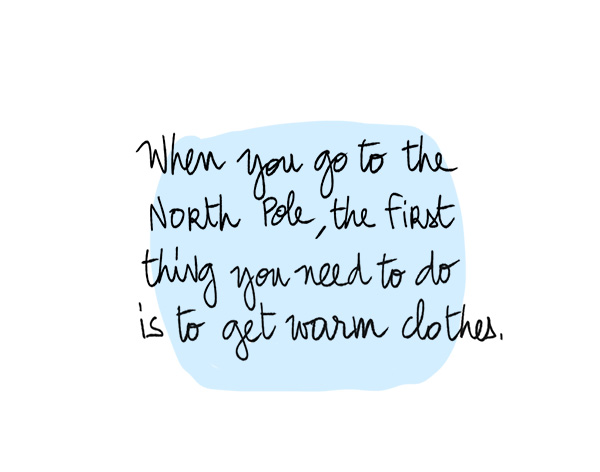 When you go to the
North Pole, the first
thing you need to do
is to get warm clothes.